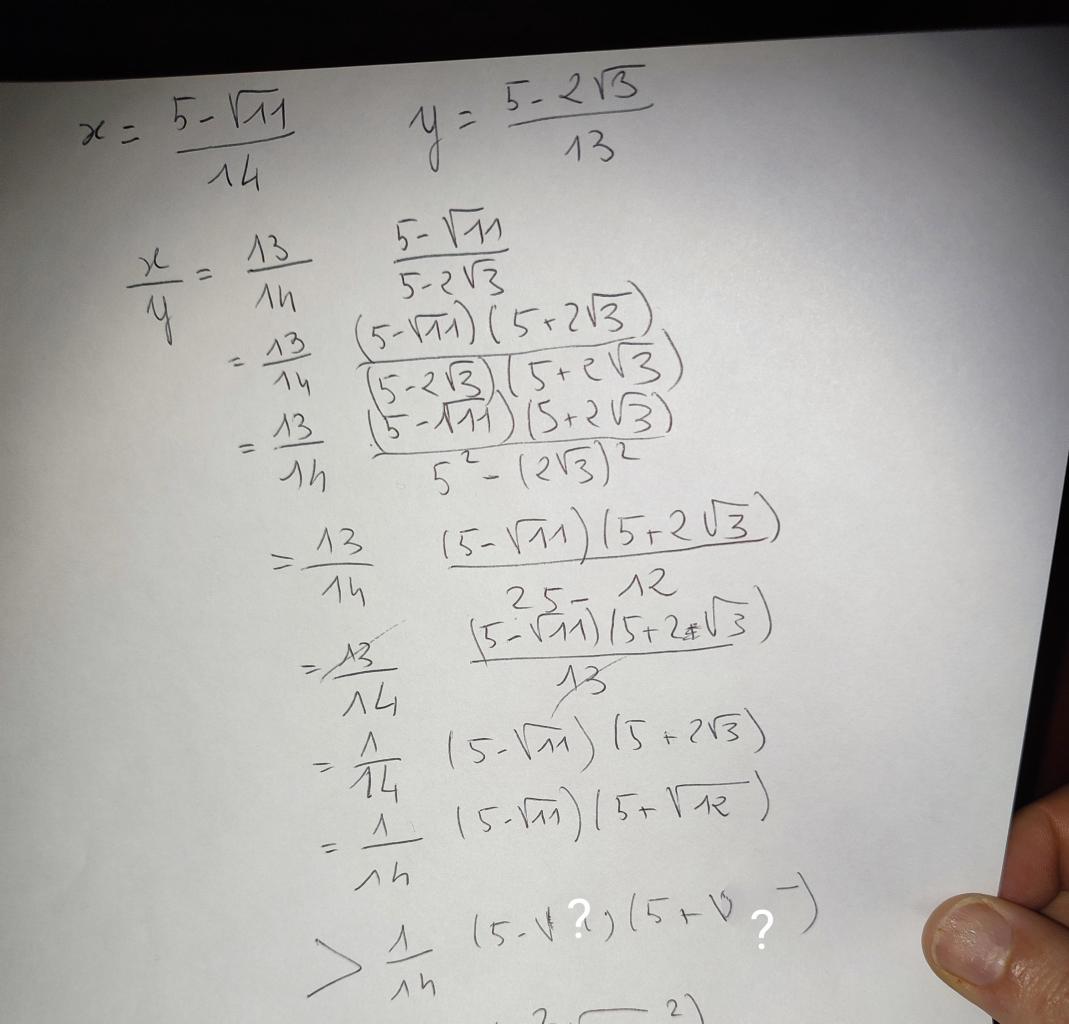 x = (5-√11)/14 y = (5-2√3)/13
x/y = 13/14 (5-√11)/(5-2√3)
= 13/14 ((5-√11)(5+2√3))/((5-2√3)(5+2√3))
= 13/14 ((5-√11)(5+2√3))/(5²-(2√3)²)
= 13/14 ((5-√11)(5+2√3))/(25-12)
= 13/14 ((5-√11)(5+2√3))/13
= 1/14 (5-√11)(5+2√3)
= 1/14 (5-√11)(5+√12)
> 1/14 (5-√?)(5+√?)